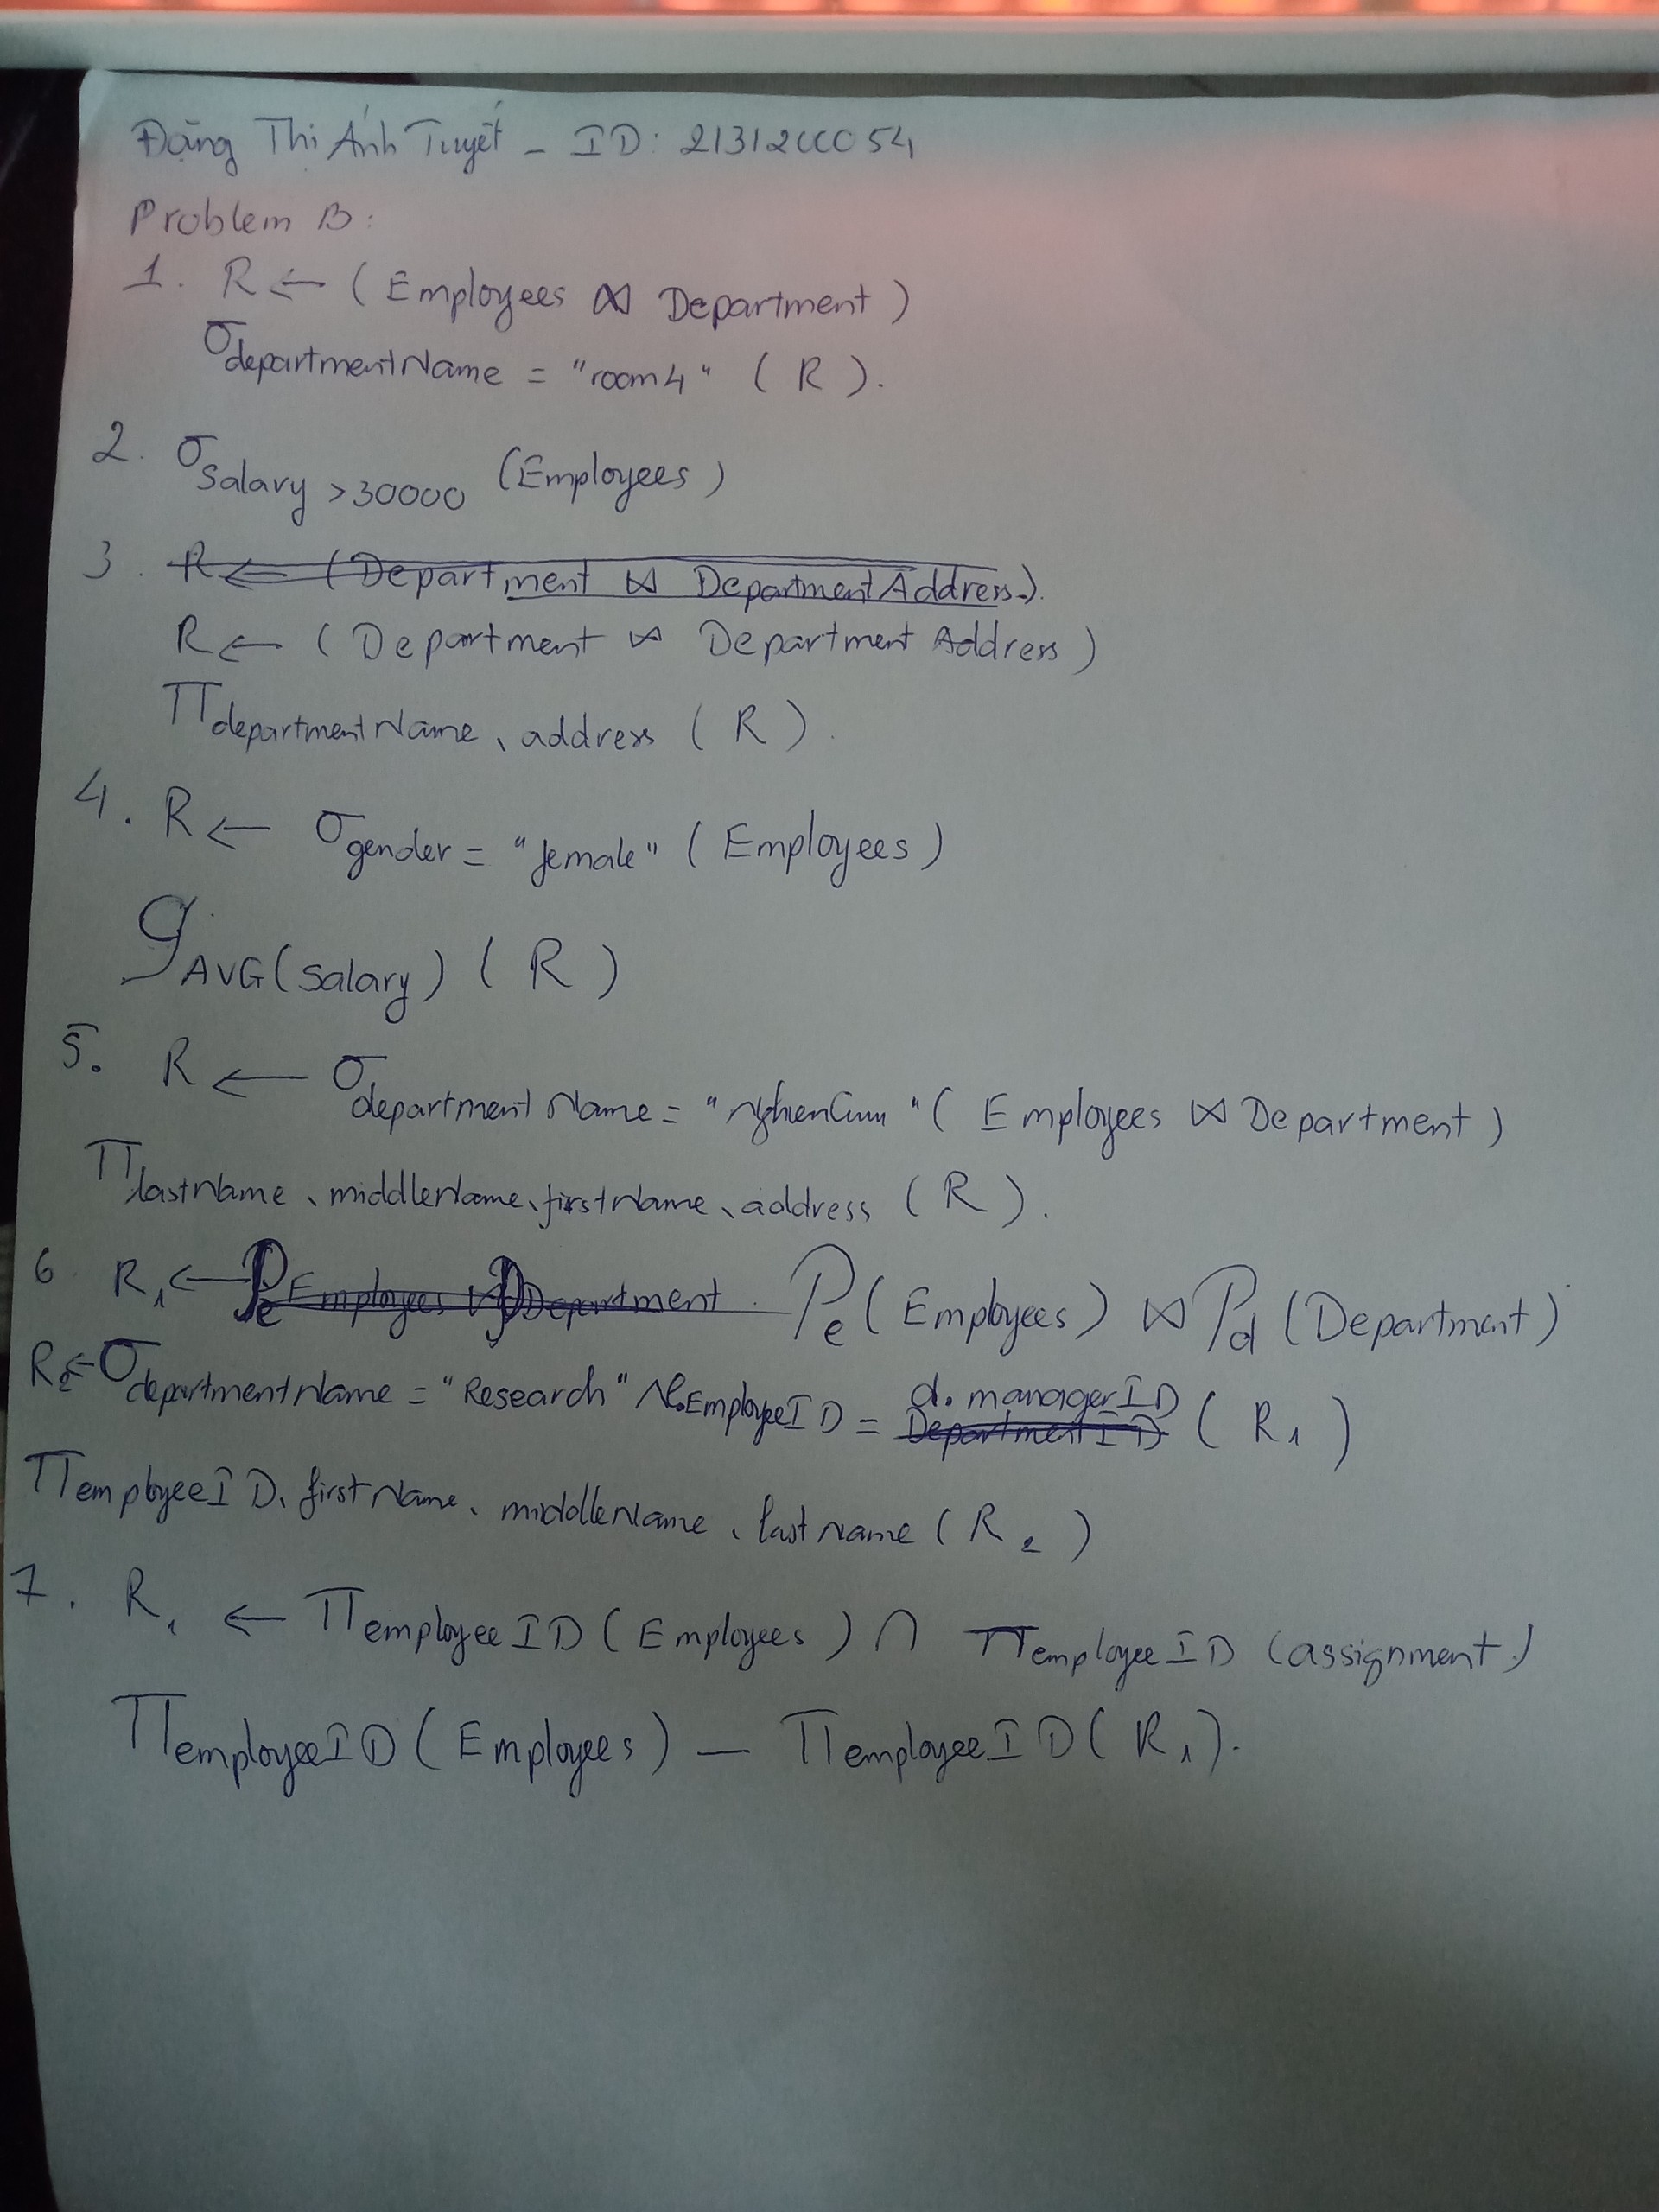 Đặng Thị Ánh Tuyết - ID: 2131200054
Problem B:
1. R ← (Employees ⋈ Department)
σdepartmentName = "room4" (R).
2. σSalary >30000 (Employees)
3. R ← (Department ⋈ DepartmentAddress).
R ← (Department ⋈ Department Address)
ΠdepartmentName, address (R).
4. R ← σgender = "female" (Employees)
𝒢AVG(salary) (R)
5. R ← σdepartmentName = "NghienCuu" (Employees ⋈ Department)
ΠlastName, middleName, firstName, address (R).
6 R1 ← ρe Employees ⋈ ρ Department ρe (Employees) ⋈ ρd (Department)
R2 ← σdepartmentName = "Research" ∧ e.EmployeeID = DepartmentID d.managerID (R1)
ΠemployeeID, firstName, middleName, last name (R2)
7. R1 ← ΠemployeeID (Employees) ∩ ΠemployeeID (assignment)
ΠemployeeID (Employees) — ΠemployeeID (R1).